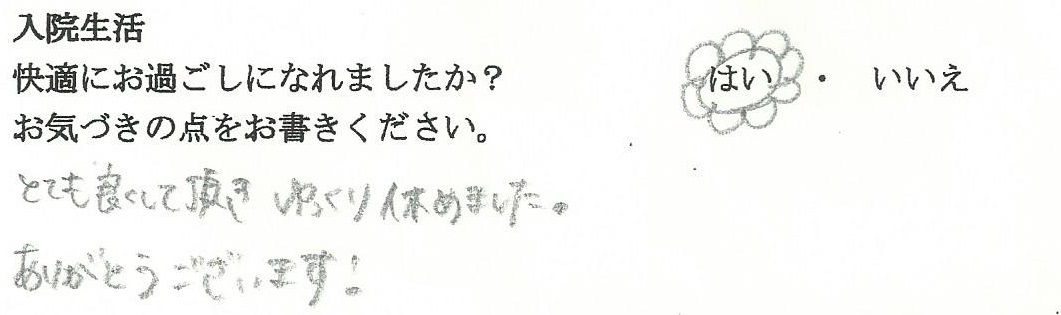 入院生活
快適にお過ごしになれましたか？ はい ・ いいえ
お気づきの点をお書きください。
とても良くして頂き ゆっくり休めました。
ありがとうございます！